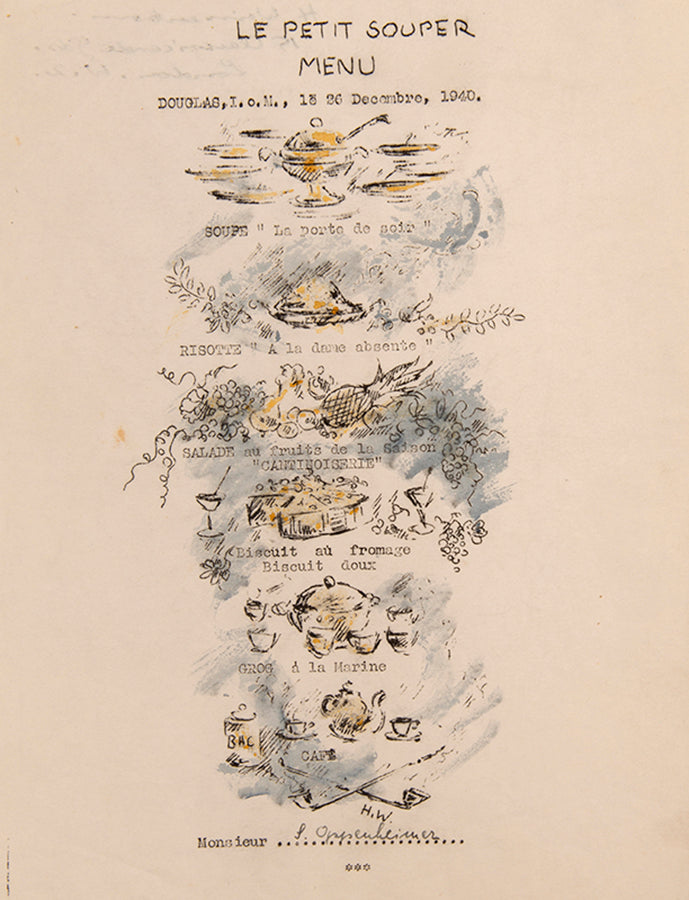 LE PETIT SOUPER
MENU
DOUGLAS,I.o.M., le 26 Decembre, 1940.
SOUPE " La porte de soir "
RISOTTE " A la dame absente "
SALADE au fruits de la Saison
"CANTINOISERIE"
Biscuit au fromage
Biscuit doux
GROG à la Marine
BAC
CAFE
H.W.
Monsieur S. Oppenheimer
***